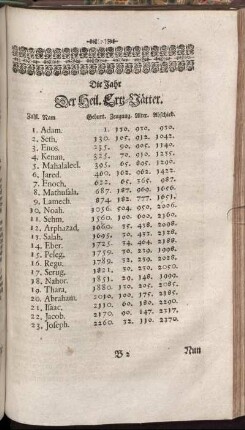 Die Jahr
Der Heil. Ertz-Vätter.
Zahl. Nam Geburt. Zeugung. Alter. Abschied.
1. Adam. 1. 130. 930. 930.
2. Seth, 130. 105. 912. 1042.
3. Enos. 235. 90. 905. 1140.
4. Kenan, 325. 70. 910. 1235.
5. Mahalaleel. 395. 65. 895. 1290.
6. Jared. 460. 162. 962. 1422.
7. Enoch, 622. 65. 365. 987.
8. Mathusala, 687. 187. 969. 1656.
9. Lamech. 874. 182. 777. 1651.
10. Noah. 1056. 500. 950.
11. Sehm, 1560. 100. 600. 2160.
12. Arphaxad, 1660. 35. 438.
13. Salah, 1695. 30.
14. Eber. 1725. 34. 464.
15. Peleg. 1759. 30. 239. 1998.
16. Regu. 1789. 32.
17. Serug. 1821. 30. 230.
18. Nahor. 1851.
19. Thara, 1880. 130. 205. 2085.
20. Abraham. 2010. 100. 175. 2185.
21. Isaac, 2110. 60. 180. 2290.
22. Jacob. 2170. 90. 147. 2317.
23. Joseph. 2260. 110. 2370.
B 2 Nun